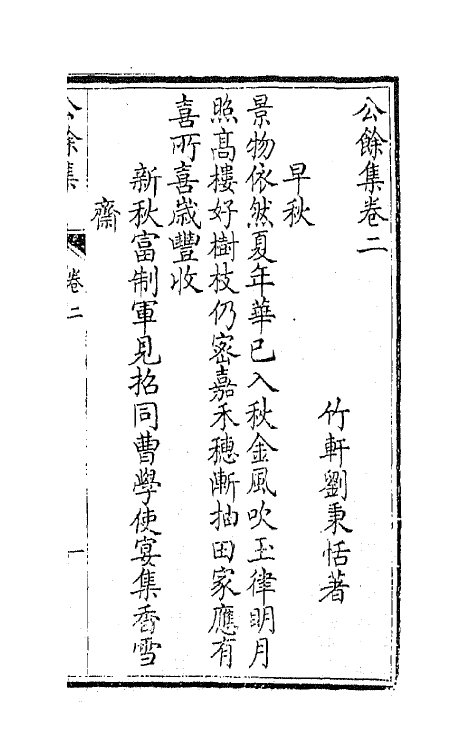 公餘集卷二
竹軒劉秉恬著
早秋
景物依然夏年華已入秋金風吹玉律明月
照高樓好樹枝仍密嘉禾穗漸抽田家應有
喜所喜歲豐收
新秋富制軍見招同曹學使宴集香雪
齋
公餘集
卷二
一